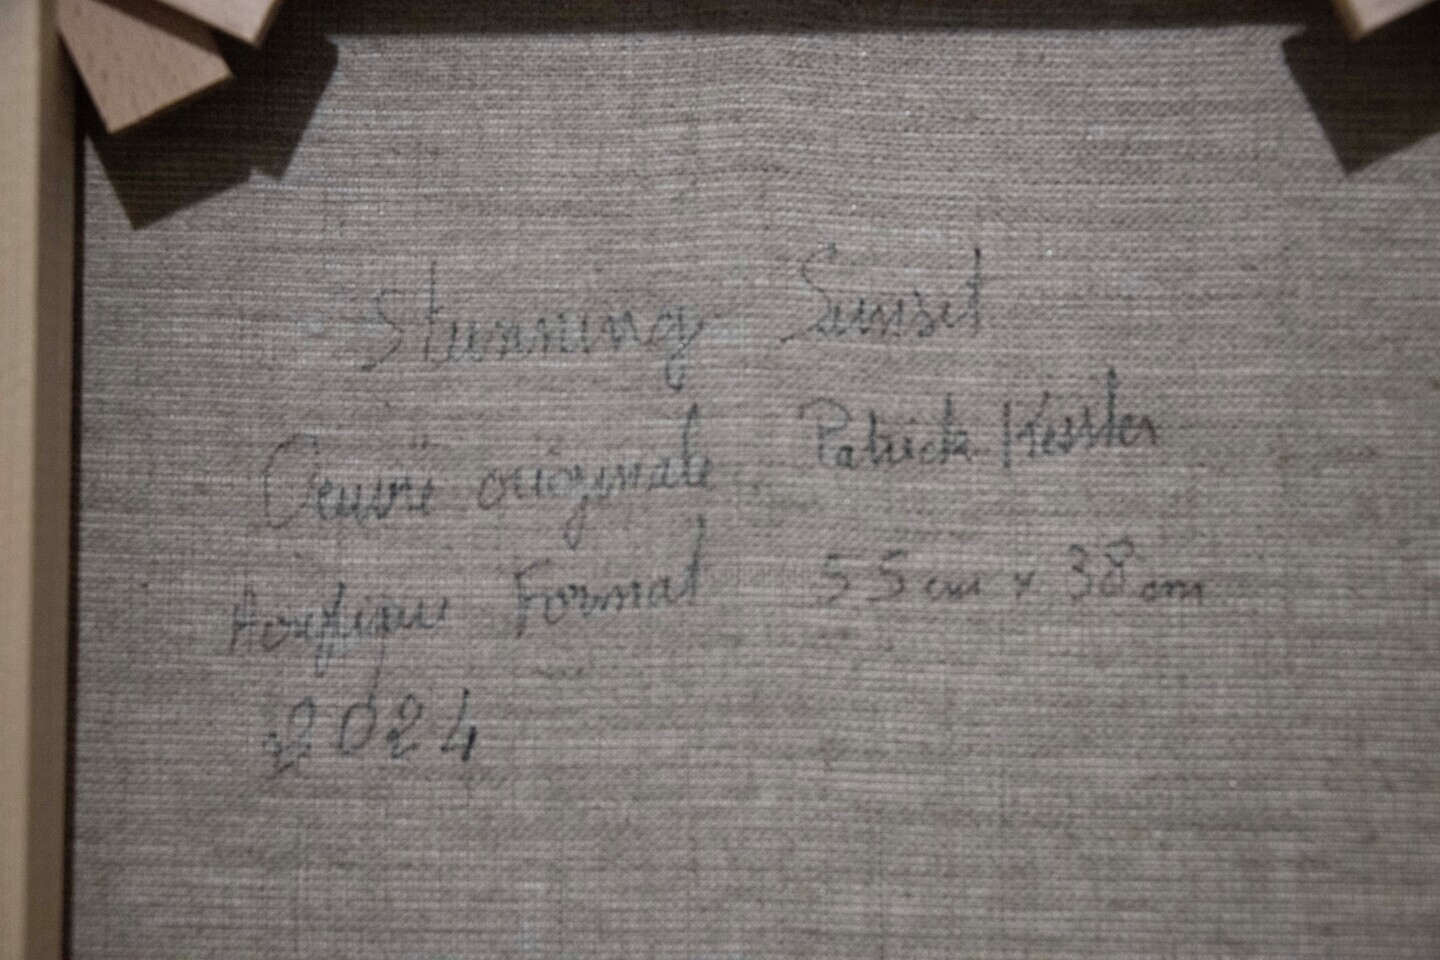 Stunning Sunset
Oeuvre originale Patrick Kessler
Acrylique Format 55 cm x 38 cm
2024